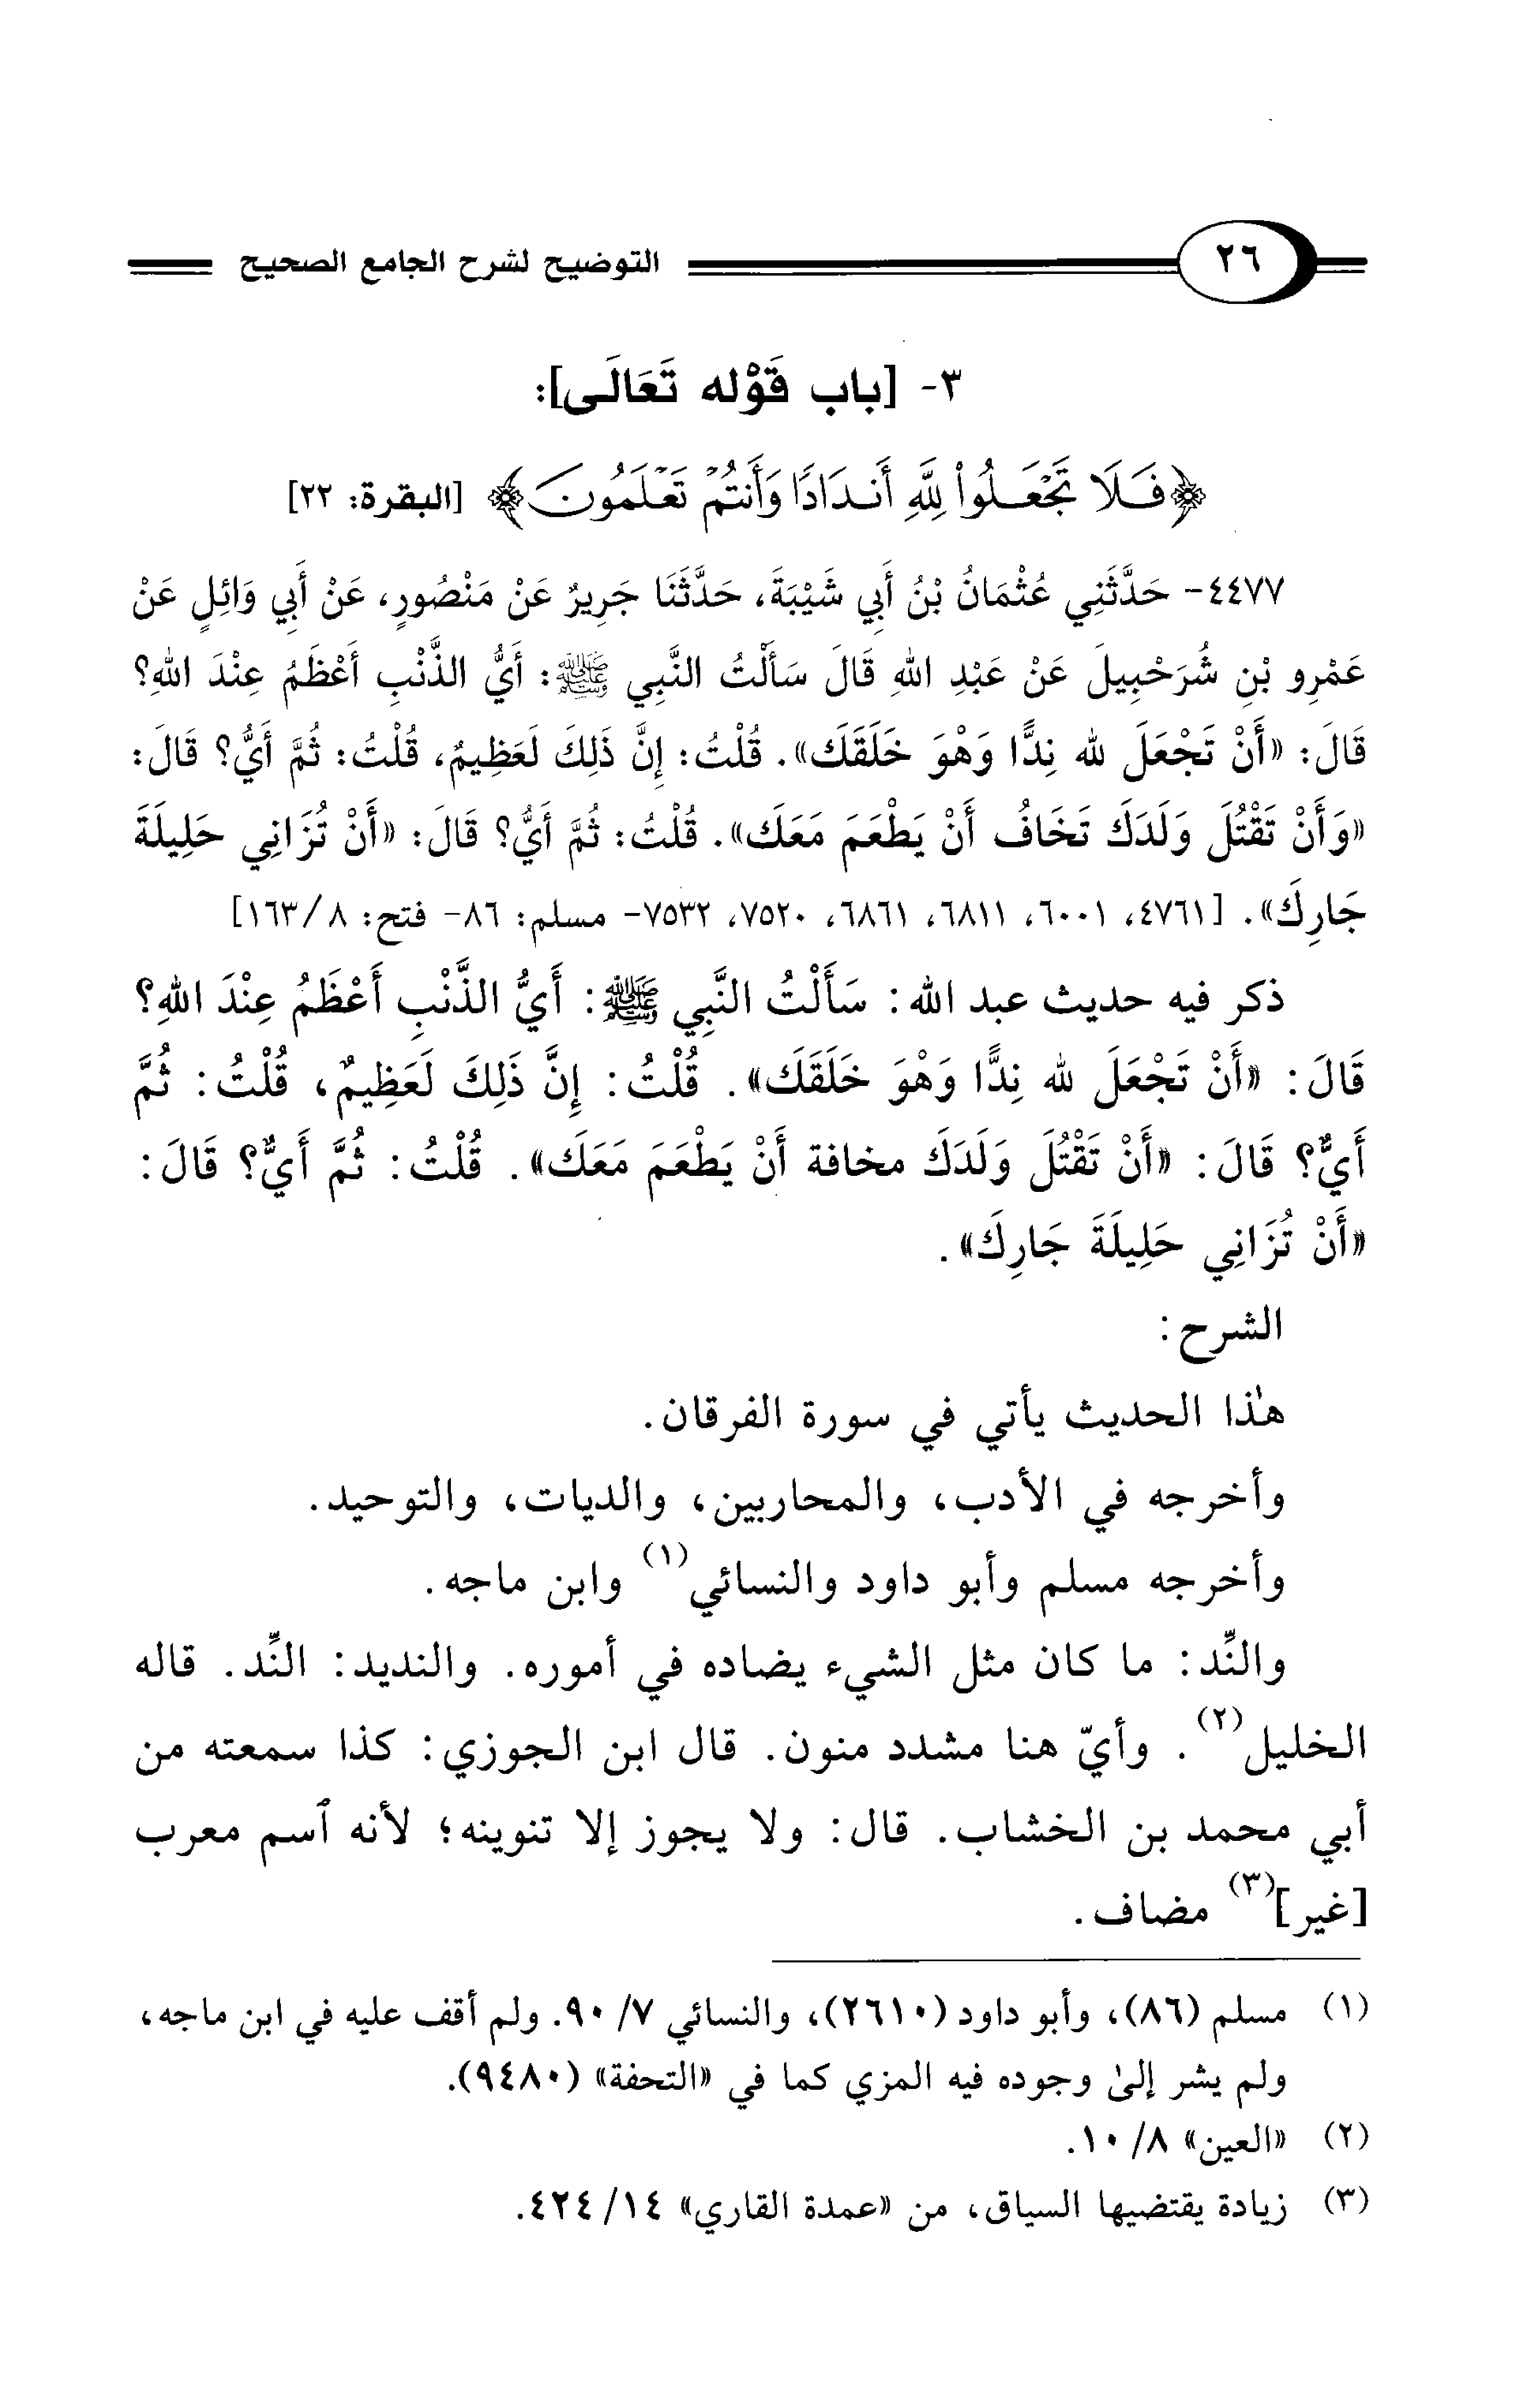 ٢٦ التوضيح لشرح الجامع الصحيح
٣- [باب قَوْله تَعَالَى]:
﴿فَلَا تَجْعَلُوا۟ لِلَّهِ أَندَادًا وَأَنتُمْ تَعْلَمُونَ﴾ [البقرة: ٢٢]
٤٤٧٧- حَدَّثَنِي عُثْمَانُ بْنُ أَبِي شَيْبَةَ، حَدَّثَنَا جَرِيرٌ عَنْ مَنْصُورٍ، عَنْ أَبِي وَائِلٍ عَنْ
عَمْرِو بْنِ شُرَحْبِيلَ عَنْ عَبْدِ اللهِ قَالَ سَأَلْتُ النَّبِي ﷺ: أَيُّ الذَّنْبِ أَعْظَمُ عِنْدَ اللهِ؟
قَالَ: «أَنْ تَجْعَلَ لله نِدًّا وَهْوَ خَلَقَكَ». قُلْتُ: إِنَّ ذَلِكَ لَعَظِيمٌ، قُلْتُ: ثُمَّ أَيُّ؟ قَالَ:
«وَأَنْ تَقْتُلَ وَلَدَكَ تَخَافُ أَنْ يَطْعَمَ مَعَكَ». قُلْتُ: ثُمَّ أَيُّ؟ قَالَ: «أَنْ تُزَانِي حَلِيلَةَ
جَارِكَ». [٤٧٦١، ٦٠٠١، ٦٨١١، ٦٨٦١، ٧٥٢٠، ٧٥٣٢- مسلم: ٨٦- فتح: ٨/١٦٣]
ذكر فيه حديث عبد الله: سَأَلْتُ النَّبِي ﷺ: أَيُّ الذَّنْبِ أَعْظَمُ عِنْدَ اللهِ؟
قَالَ: «أَنْ تَجْعَلَ لله نِدًّا وَهْوَ خَلَقَكَ». قُلْتُ: إِنَّ ذَلِكَ لَعَظِيمٌ، قُلْتُ: ثُمَّ
أَيٌّ؟ قَالَ: «أَنْ تَقْتُلَ وَلَدَكَ مخافة أَنْ يَطْعَمَ مَعَكَ». قُلْتُ: ثُمَّ أَيٌّ؟ قَالَ:
«أَنْ تُزَانِي حَلِيلَةَ جَارِكَ».
الشرح:
هذا الحديث يأتي في سورة الفرقان.
وأخرجه في الأدب، والمحاربين، والديات، والتوحيد.
وأخرجه مسلم وأبو داود والنسائي(١) وابن ماجه.
والنِّد: ما كان مثل الشيء يضاده في أموره. والنديد: النِّد. قاله
الخليل(٢). وأيّ هنا مشدد منون. قال ابن الجوزي: كذا سمعته من
أبي محمد بن الخشاب. قال: ولا يجوز إلا تنوينه؛ لأنه ٱسم معرب
[غير](٣) مضاف.
(١) مسلم (٨٦)، وأبو داود (٢٦١٠)، والنسائي ٧/ ٩٠. ولم أقف عليه في ابن ماجه،
ولم يشر إلىٰ وجوده فيه المزي كما في «التحفة» (٩٤٨٠).
(٢) «العين» ٨/ ١٠.
(٣) زيادة يقتضيها السياق، من «عمدة القاري» ١٤/ ٤٢٤.